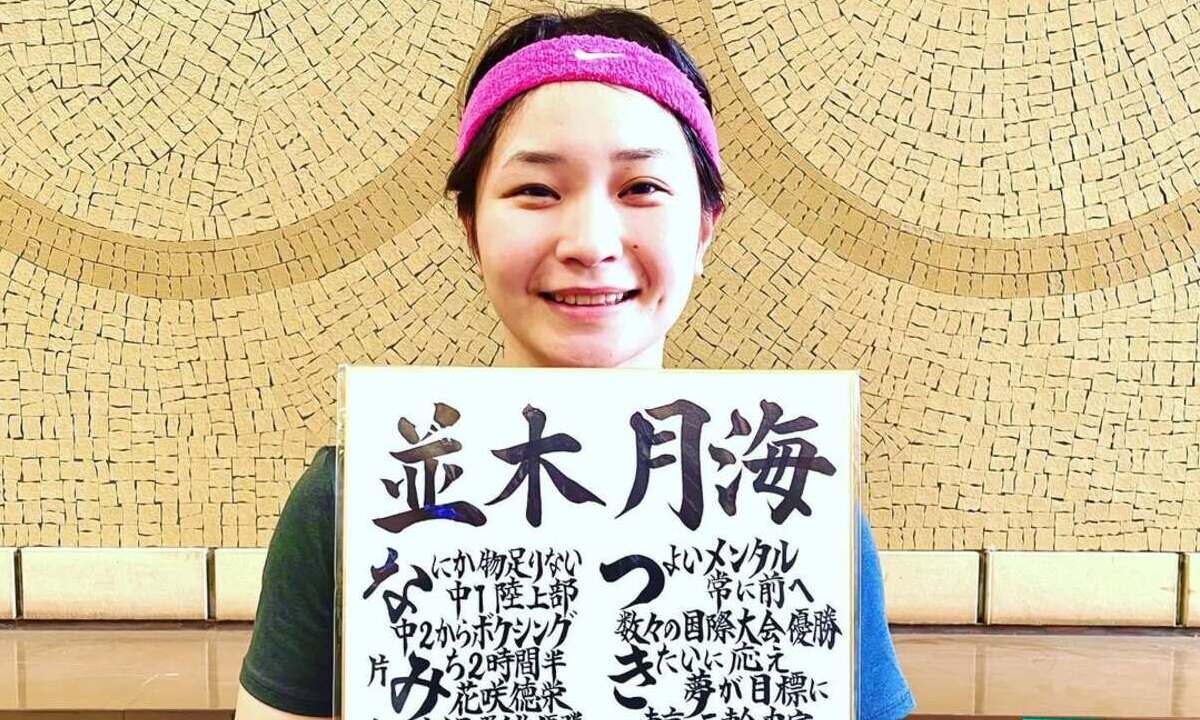 並木月海
なにか物足りない
中1陸上部
中2からボクシング
片みち2時間半
花咲徳栄
つよいメンタル
常に前へ
数々の国際大会優勝
きたいに応え
夢が目標に